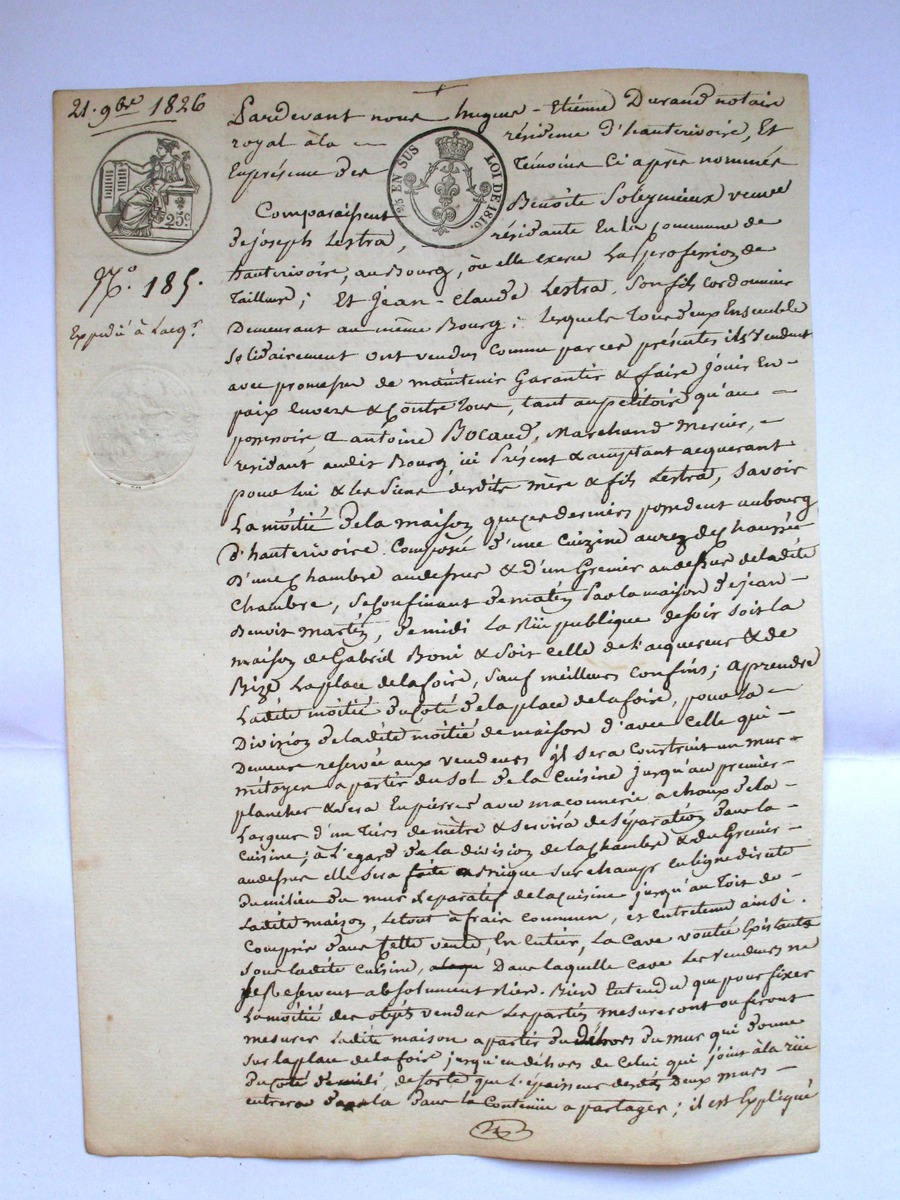 21. 9bre 1826
25 c.
N.° 185.
Expédié à l'acq.r
25 EN SUS LOI DE 1816.
Pardevant nous hugues - Etiénne Durand notaire
royal à la résidence d'hauterivoire, Et
En présence des Témoins Ci après nommés
Comparaissent Benoîte Soleymieux veuve
de joseph Lestra, résidante En la commune de
hauterivoire, au Bourg, où elle exerce La profession de
Tailleuse; Et Jean-Claude Lestra, Son fils cordonnier
Demeurant au même Bourg; Lesquels Tous deux Ensemble
solidairement ont vendus Comme par ces présentes ils Vendent
avec promesse de maintenir Garantir & faire Jouir En
paix Envers & Contre Tous, tant au pétitoire qu'au
possessoire a antoine Bocaud, Marchand Mercier,
residant audit Bourg, ici Présent & acceptant acquerant
pour lui & les Siens desdits Mère & fils Lestra, Savoir
La môitié de la maison que ces derniers possèdent au bourg
d'hauterivoire Composée d'une Cuizine au rez de Chaussée
d'une Chambre au dessus & d'un Grenier au dessus de ladite
Chambre, Se Confinant de matin Par la maison de jean
Benoit martin, de midi La rüe publique de soir soit la
maison de Gabriel Boni & soit Celle de l'acquereur & de
Bize La place de la foire, Sauf meilleurs Confins; a prendre
Ladite moitié du coté de la place de la foire, pour la
Division de ladite moitié de maison d'avec Celle qui
Demeure reservée aux vendeurs il sera Construit un mur
mitoyen a partir du sol de la Cuisine jusqu'au premier
plancher & sera En pierres avec maconnerie a chaux de la
Largeur d'un Tiers de mètre & servira de Séparation dans la
Cuisine; à l'egard de la division de la Chambre & du Grenier
au dessus elle sera faite en brique sur champ en ligne directe
Du milieu du mur Separatif de la Cuisine jusqu'au Toit de
Ladite maison, Le tout à frais commun, et Entretenu ainsi.
Compris dans Cette vente, En Entier, La Cave voutée Existante
Sous ladite cuisine, Dans laquelle Cave Les vendeurs ne
se Reservent absolument Rien. Bien Entendu que pour fixer
La môitié des objets vendus Les parties mesureront ou feront
mesurer Ladite maison a partir du déhors du mur qui donne
sur la place de la foire jusqu'en déhors de Celui qui joint à la rüe
du Coté de midi, de sorte que L'épaisseur desdits Deux murs
entrera dans la Contenüe a partager; il est Expliqué